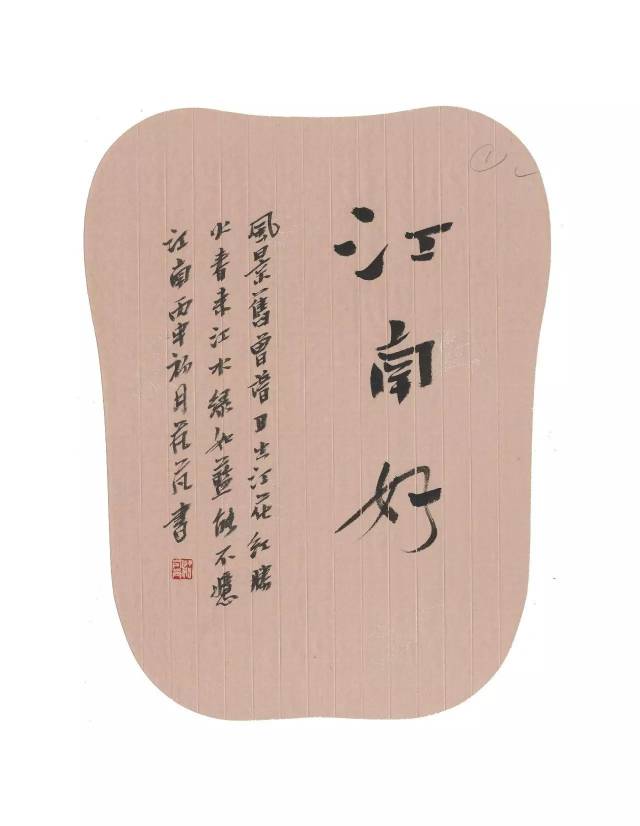 江南好
風景舊曾諳日出江花紅勝
火春来江水緑如藍能不憶
江南丙申初月書